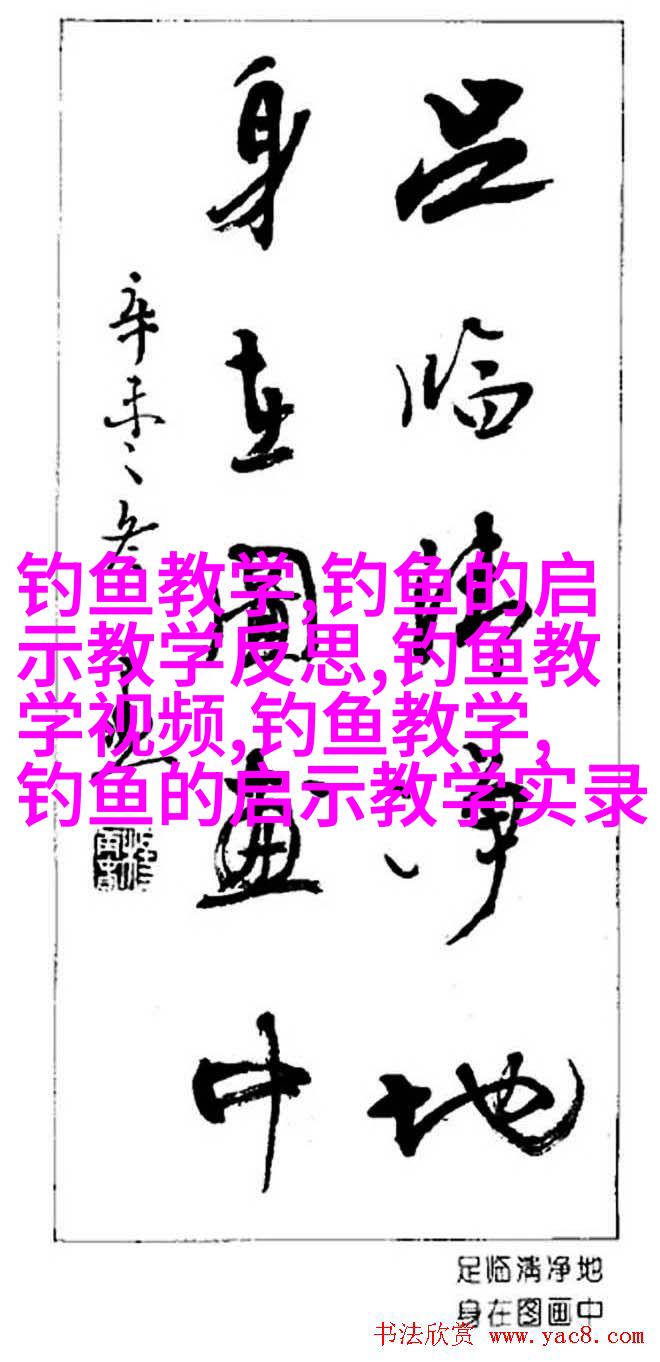 足临清净地
身在图画中
辛未之冬
钓鱼教学,钓鱼的启
示教学反思,钓鱼教
学视频,钓鱼教学,
钓鱼的启示教学实录
足临清净地
身在图画中
书法欣赏 www.yac8.com